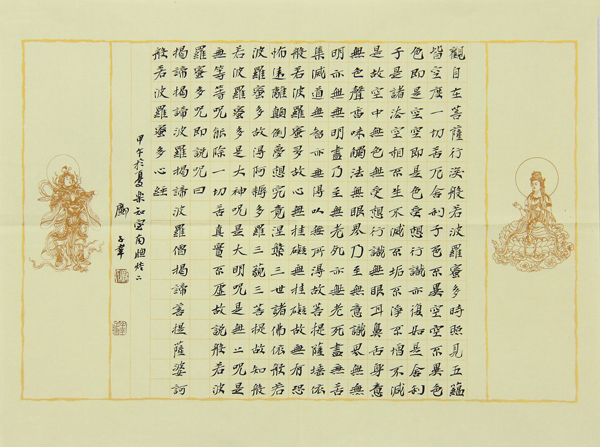 觀自在菩薩行深般若波羅蜜多時照見五蘊
皆空度一切苦厄舍利子色不異空空不異色
色即是空空即是色受想行識亦復如是舍利
子是諸法空相不生不滅不垢不淨不增不減
是故空中無色無受想行識無眼耳鼻舌身意
無色聲香味觸法無眼界乃至無意識界無無
明亦無無明盡乃至無老死亦無老死盡無苦
集滅道無智亦無得以無所得故菩提薩埵依
般若波羅蜜多故心無挂礙無挂礙故無有恐
怖遠離顛倒夢想究竟涅槃三世諸佛依般若
波羅蜜多故得阿耨多羅三藐三菩提故知般
若波羅蜜多是大神咒是大明咒是無上咒是
無等等咒能除一切苦真實不虛故說般若波
羅蜜多咒即說咒曰
揭諦揭諦波羅揭諦波羅僧揭諦菩提薩婆訶
般若波羅蜜多心經
甲午於